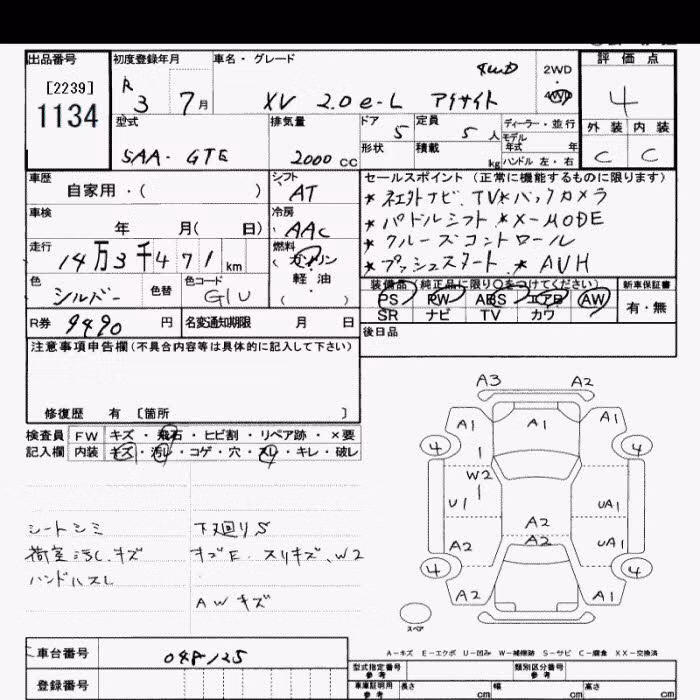 出品番号 初度登録年月 車名・グレード 評価点
[2239] R 4WD 2WD
1134 3 7月 XV 2.0e-L アイサイト 4WD 4
型式 排気量 ドア 定員 ディーラー・並行 外装 内装
5 5人 モデル年式 年
SAA-GTE 2000cc 形状 積載 kg ハンドル 左・右 C C
車歴 シフト セールスポイント(正常に機能するものに限ります)
自家用・( ) AT *社外ナビ、TV*バックカメラ
車検 冷房 *パドルシフト*X-MODE
年 月( 日) AAC *クルーズコントロール
走行 燃料 *プッシュスタート*AVH
14万3千471km (ガソリン
色 色替 色コード 軽油 装備品(純正品に限り○をつけてください) 新車保証書
シルバー G1U ( ・ ) PS PW ABS エアB AW 有・無
SR ナビ TV カワ
R券 9490円 名変通知期限 月 日 後日品
注意事項申告欄(不具合内容等は具体的に記入して下さい)
修復歴 有 [箇所 ]
検査員 FW キズ・飛石・ヒビ割・リペア跡・×要
記入欄 内装 キズ・汚レ・コゲ・穴・スレ・キレ・破レ
シートシミ 下廻りS
荷室汚レ、キズ キズE、スリキズ、W2
ハンドルスレ
AWキズ
A3 A2
A1 A1 A1
4 4
1
W2
U1 UA1
A2
A2 A2 UA1
4 4
A2 A1
スペア
A-キズ E-エクボ U-凹み W-補修跡 S-サビ C-腐食 XX-交換済
車台番号
登録番号
型式指定番号 参考 類別区分番号 参考
車庫証明用 参考 長さ cm 幅 cm 高さ cm